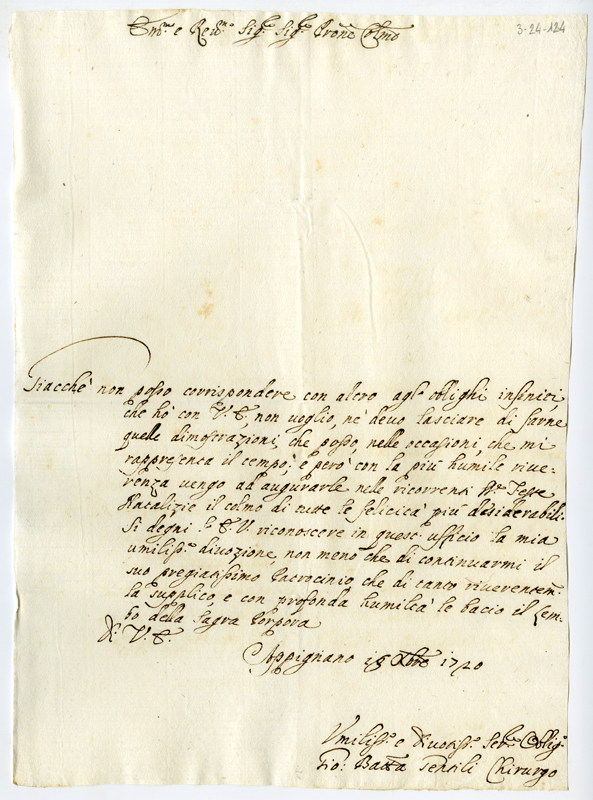 Em.o e Rev.mo Sig.re Sig.re Prone Colmo
3-24-124
Giacche' non posso corrispondere con altro agl' oblighi infiniti,
che hò con V. E., non voglio, nè devo lasciare di farne
quelle dimostrazioni, che posso, nelle occasioni, che mi
rappresenta il tempo; e però con la più humile rive-
renza vengo ad augurarle nelle ricorrenti Ste Feste
Natalizie il colmo di tutte le felicità più desiderabili.
Si degni l' E. V. riconoscere in quest' ufficio la mia
umiliss.a divozione, non meno che di continuarmi il
suo pregiatissimo Patrocinio, che di tanto riverentem.te
la supplico, e con profonda humiltà le bacio il lem-
bo della Sagra Porpora
D. V. E.
Appignano 18 Xbre 1740
Umiliss.o e Divotiss.o Se.re Oblig.o
Gio: Batta Tensili Chirurgo